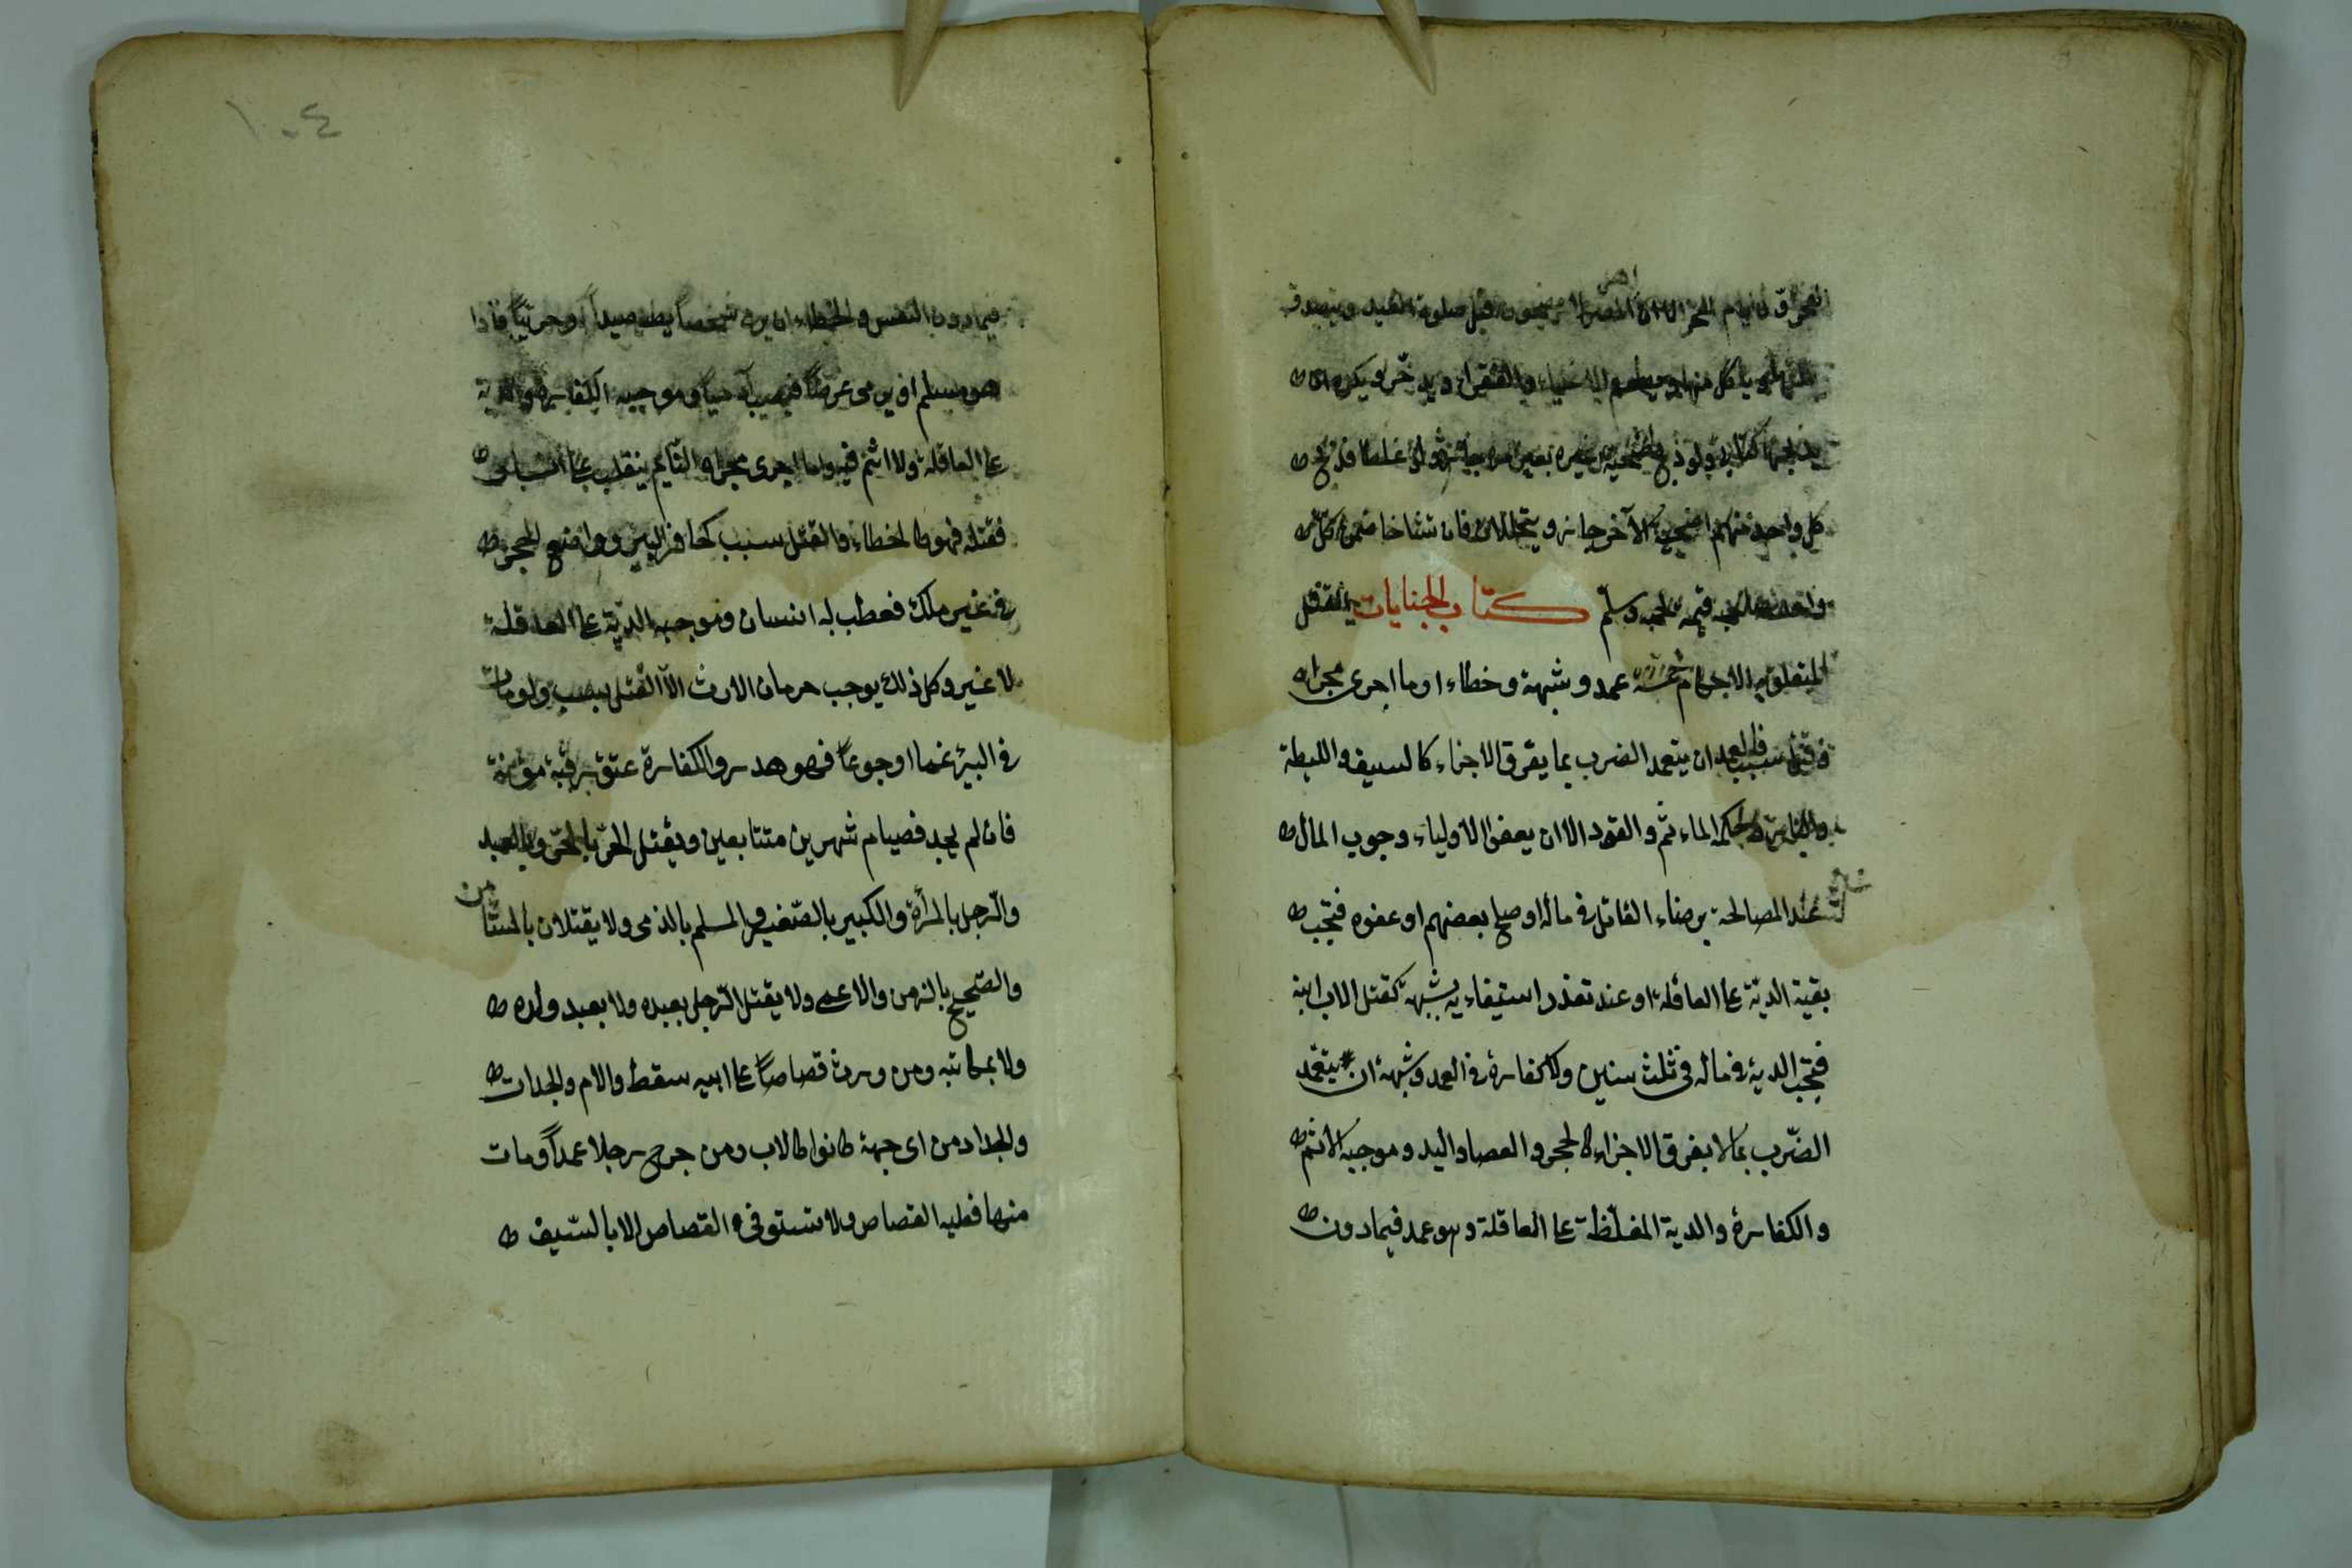 ايام النحر الا ان اهل المصر لا يضحون قبل صلوة العيد ويتصدق
بثلثها ويأكل منها ويطعم الاغنياء والفقراء ويدخر ويكره ان
يذبحها كتابي ولو ذبح اضحية غيره بغير امره جاز ولو غلطا فذبح
كل واحد منهما اضحية الآخر جاز ويتحللان فان تشاحا ضمن كل
واحد لصاحبه قيمة لحمه وسلم كتاب الجنايات القتل
المتعلق به الاحكام خمسة عمد وشبهه وخطاء او ما اجرى مجراه
وقتل بسبب فالعمد ان يتعمد الضرب بما يفرق الاجزاء كالسيف والليطة
والنار وحكمه المأثم والقود الا ان يعفو الاولياء وجوب المال
عند المصالحة برضاء القاتل في ماله او صلح بعضهم او عفوه فتجب
بقية الدية على العاقلة او عند تعذر استيفاءيه بشبهة كقتل الاب ابنه
فتجب الدية في ماله في ثلث سنين ولا كفارة في العمد وشبهه ان يتعمد
الضرب بما لا يفرق الاجزاء كالحجر والعصا واليد وموجبه الاثم
والكفارة والدية المغلظة على العاقلة وهو عمد فيما دون
١٠٤
فيما دون النفس والخطاء ان يرمى شخصاً يظنه صيداً او حربيّاً فاذا
هو مسلم او يرمى غرضاً فيصيب آدمياً وموجبه الكفارة والدية
على العاقلة ولا اثم فيه وما اجرى مجراه النائم ينقلب على انسان
فقتله فهو كالخطاء والقتل بسبب كحافر البئر وواضع الحجر
في غير ملكه فعطب به انسان وموجبه الدية على العاقلة
لا غير وكل ذلك يوجب حرمان الارث الا القتل بسبب ولو مات
في البئر غما او جوعاً فهو هدر والكفارة عتق رقبة مؤمنة
فان لم يجد فصيام شهرين متتابعين ويقتل الحر بالحر وبالعبد
والرجل بالمرأة والكبير بالصغير والمسلم بالذمى ولا يقتلان بالمستأمن
والصحيح بالزمن والاعمى ولا يقتل الرجل بعبده ولا بعبد ولده
ولا بمكاتبه ومن ورث قصاصاً على ابيه سقط والام والجدات
والجداد من اى جهة كانوا كالاب ومن جرح رجلا عمداً ومات
منها فعليه القصاص ولا يستوفى القصاص الا بالسيف